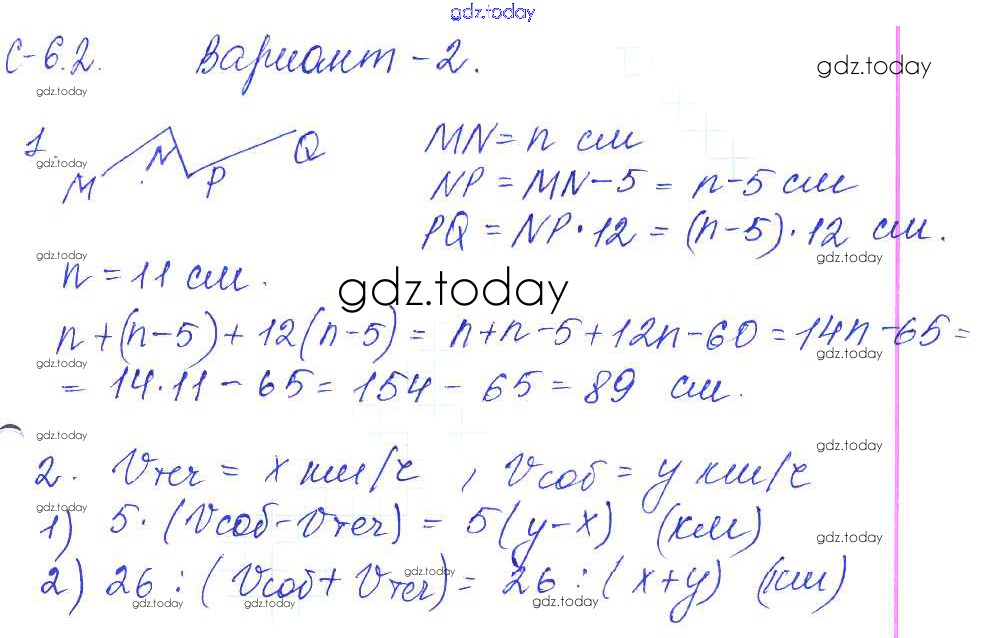 gdz.today
С-6.2. Вариант-2.
gdz.today
gdz.today
1. M N P Q
gdz.today
MN = n см
NP = MN - 5 = n - 5 см
PQ = NP · 12 = (n - 5) · 12 см.
gdz.today gdz.today
n = 11 см.
gdz.today
n + (n - 5) + 12(n - 5) = n + n - 5 + 12n - 60 = 14n - 65 =
gdz.today gdz.today
= 14 · 11 - 65 = 154 - 65 = 89 см.
gdz.today gdz.today
2. Vтеч = x км/ч, Vсоб = y км/ч
gdz.today
1) 5 · (Vсоб - Vтеч) = 5(y - x) (км)
gdz.today
gdz.today gdz.today
2) 26 : (Vсоб + Vтеч) = 26 : (x + y) (км)
gdz.today gdz.today gdz.today